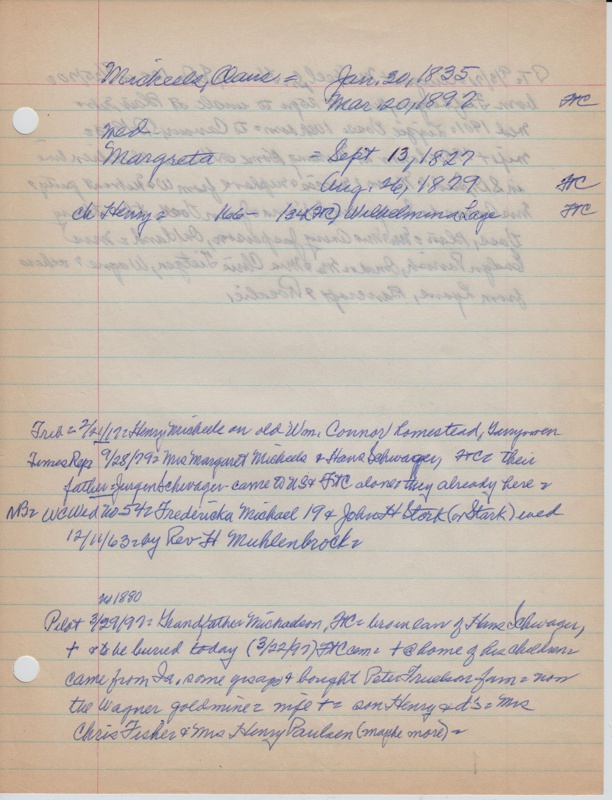 Micheels, Claus = Jan. 20, 1835
Mar. 20, 1897 FC
wed
Margreta = Sept 13, 1827
Aug. 26, 1879 FC
ch Henry = 166- 134 (FC) Wilhelmina Lage FC
Trib = 2/21/17 = Henry Micheels on old Wm. Connor homestead, Garryowen
Times Rep. 9/28/79 = Mrs Margaret Micheels & Hans Schwager, FC = their
father Jurgen Schwager - came to US & FC alone they already here =
NB = WC Wed No 54 = Fredericka Michael 19 & John H Stork (or Stark) wed
12/11/63 = by Rev H Muhlenbrock =
no 1880
Pilot 3/29/97 = Grandfather Michaelson, FC = bro in law of Hans Schwager,
+ & to be buried today (3/22/97) FC cem = + @ home of his children =
came from Ia, some yrs ago & bought Peter Fruelson farm = now
the Wagner goldmine = wife + = son Henry & d's = Mrs
Chris Fisher & Mrs Henry Paulsen (maybe more) =